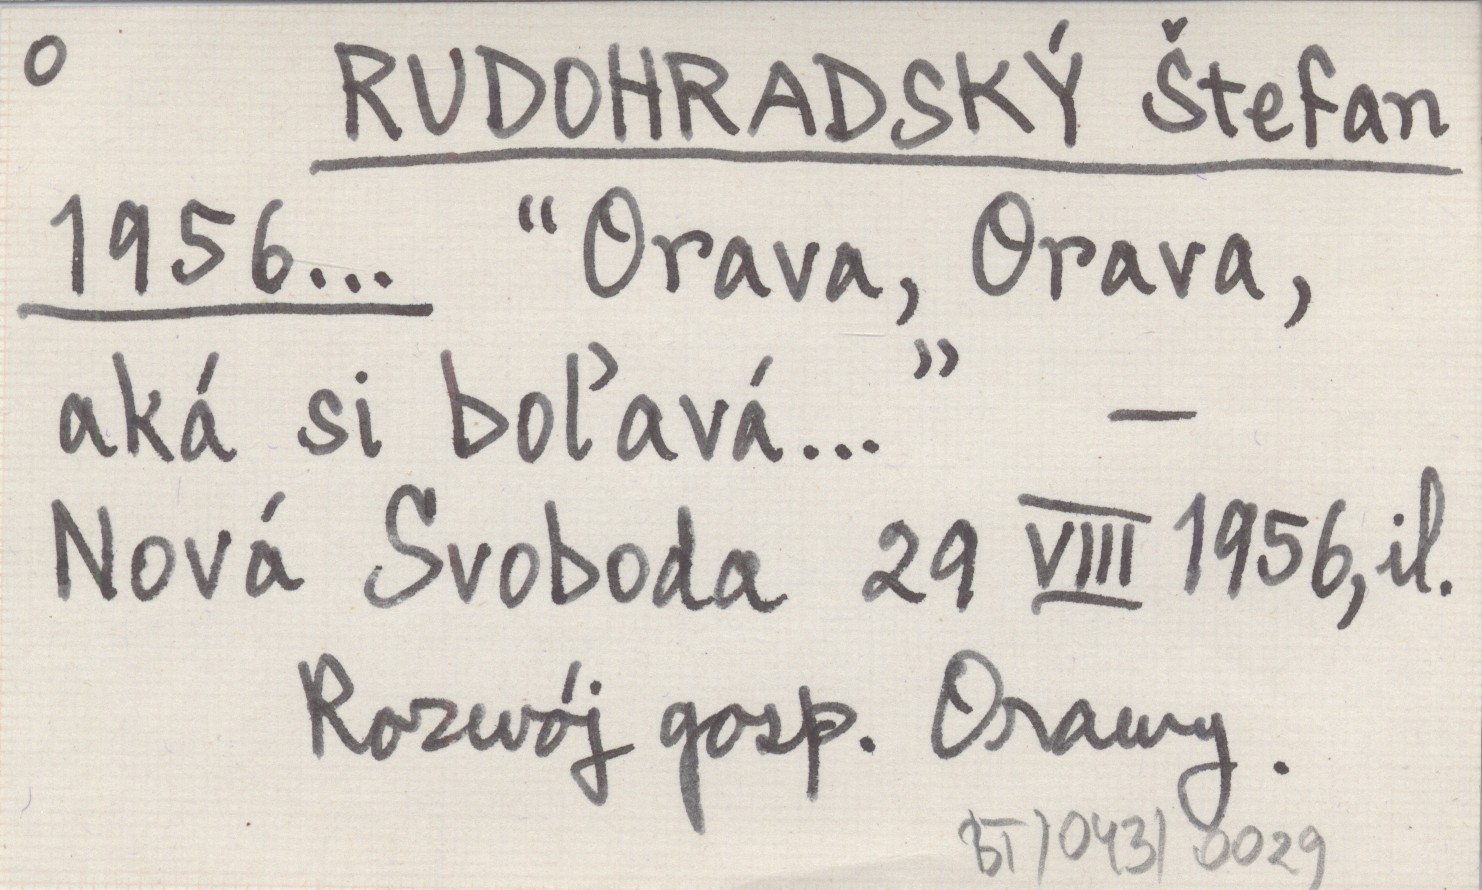 O RUDOHRADSKÝ Štefan
1956... "Orava, Orava,
aká si boľavá..." –
Nová Svoboda 29 VIII 1956, il.
Rozwój gosp. Orawy.
BT/043/0029